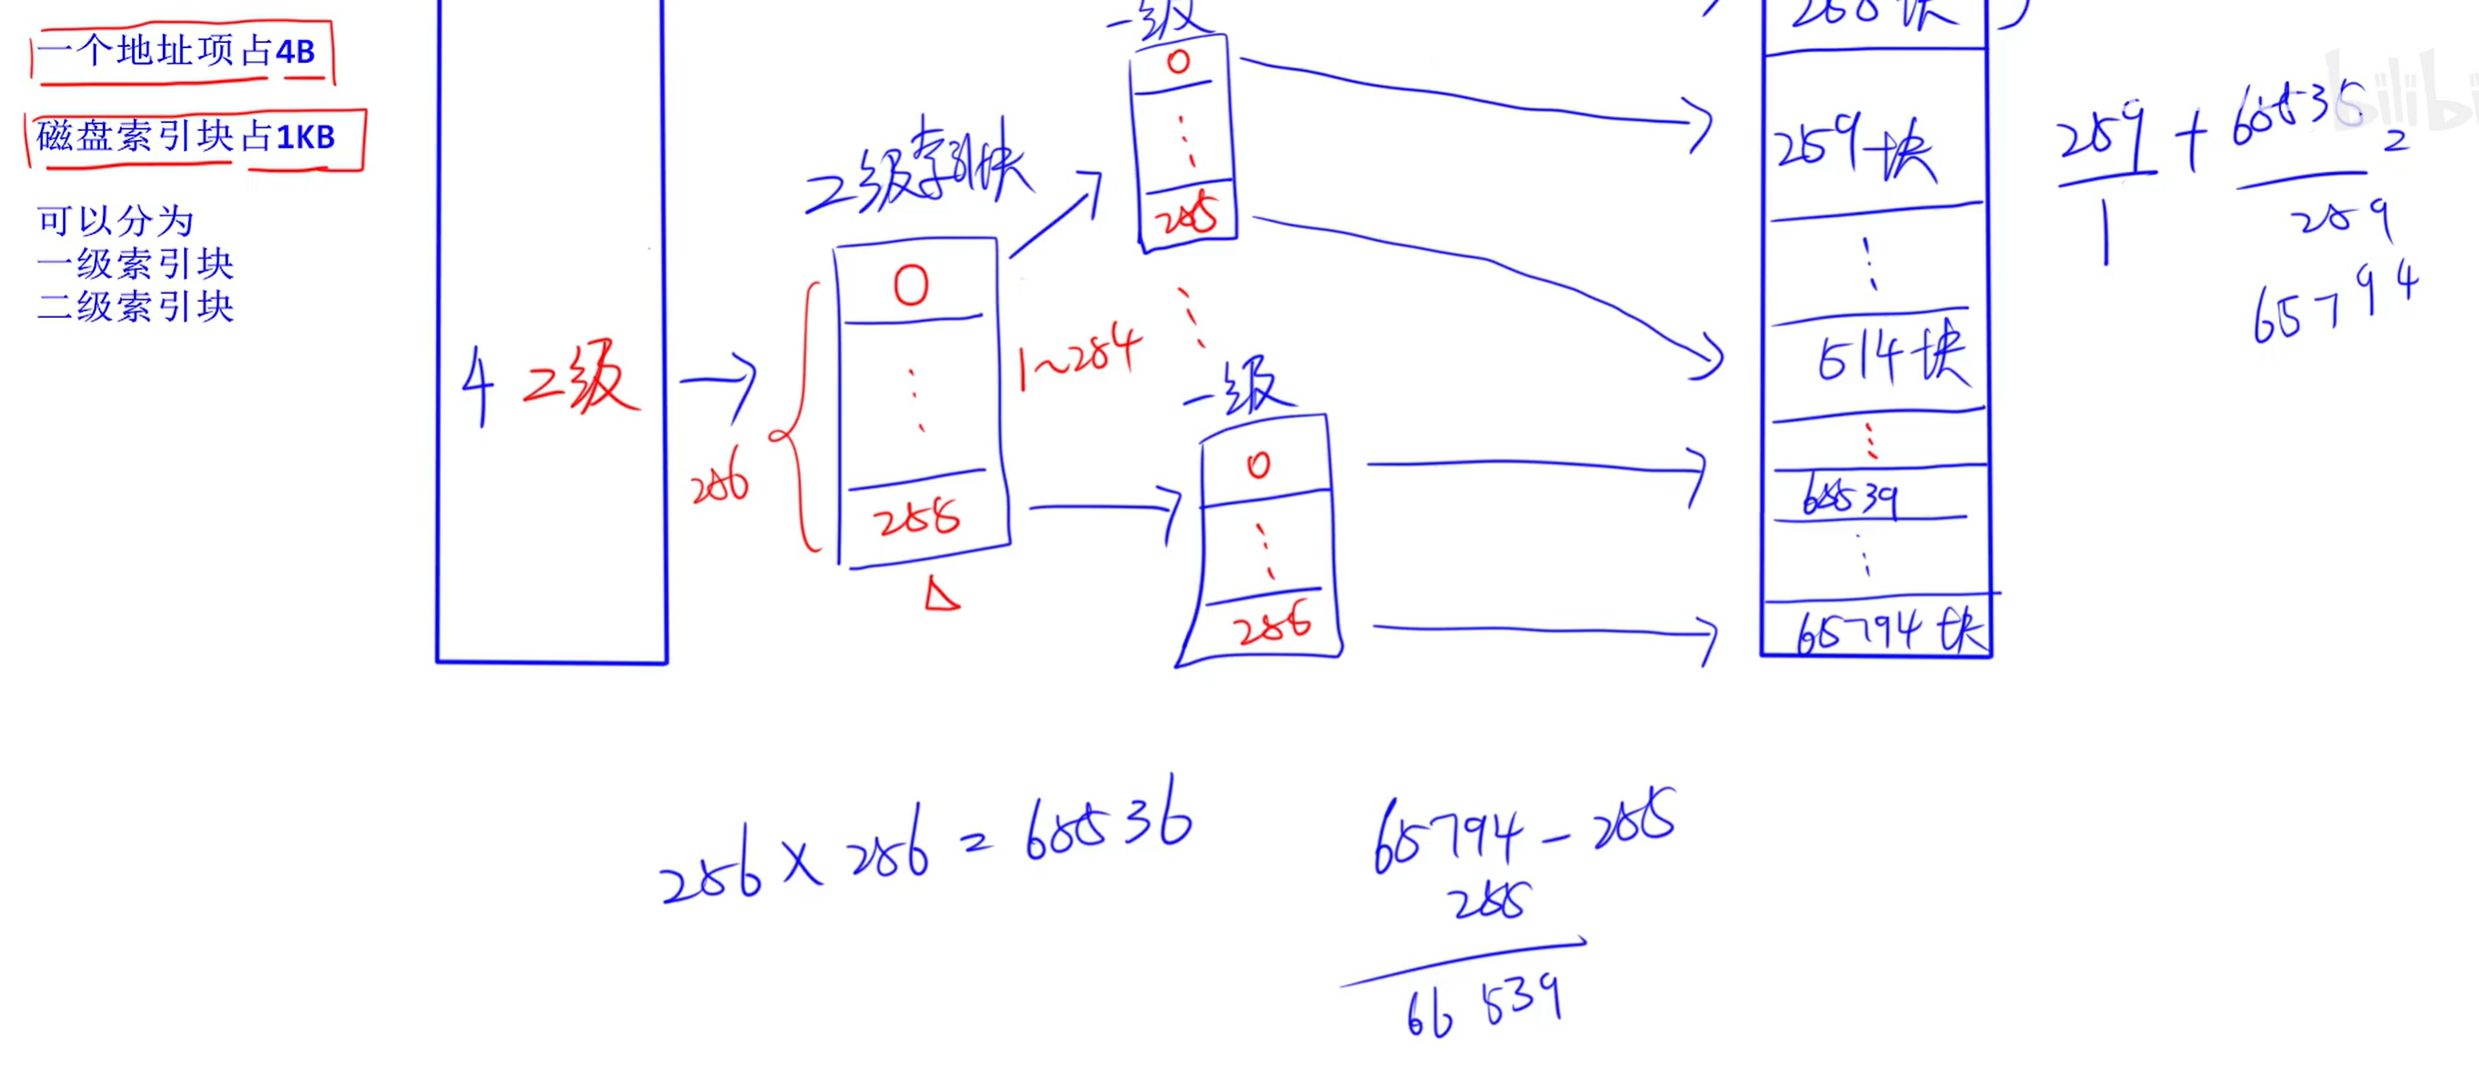 一个地址项占4B
磁盘索引块占1KB
可以分为
一级索引块
二级索引块
4 二级
256
2级索引块
0
255
1~254
一级
0
255
一级
0
256
258块
259块
514块
65539
65794块
259 + 65536
1
259
65794
256 × 256 = 65536
65794 - 255
255
65539
bilibi